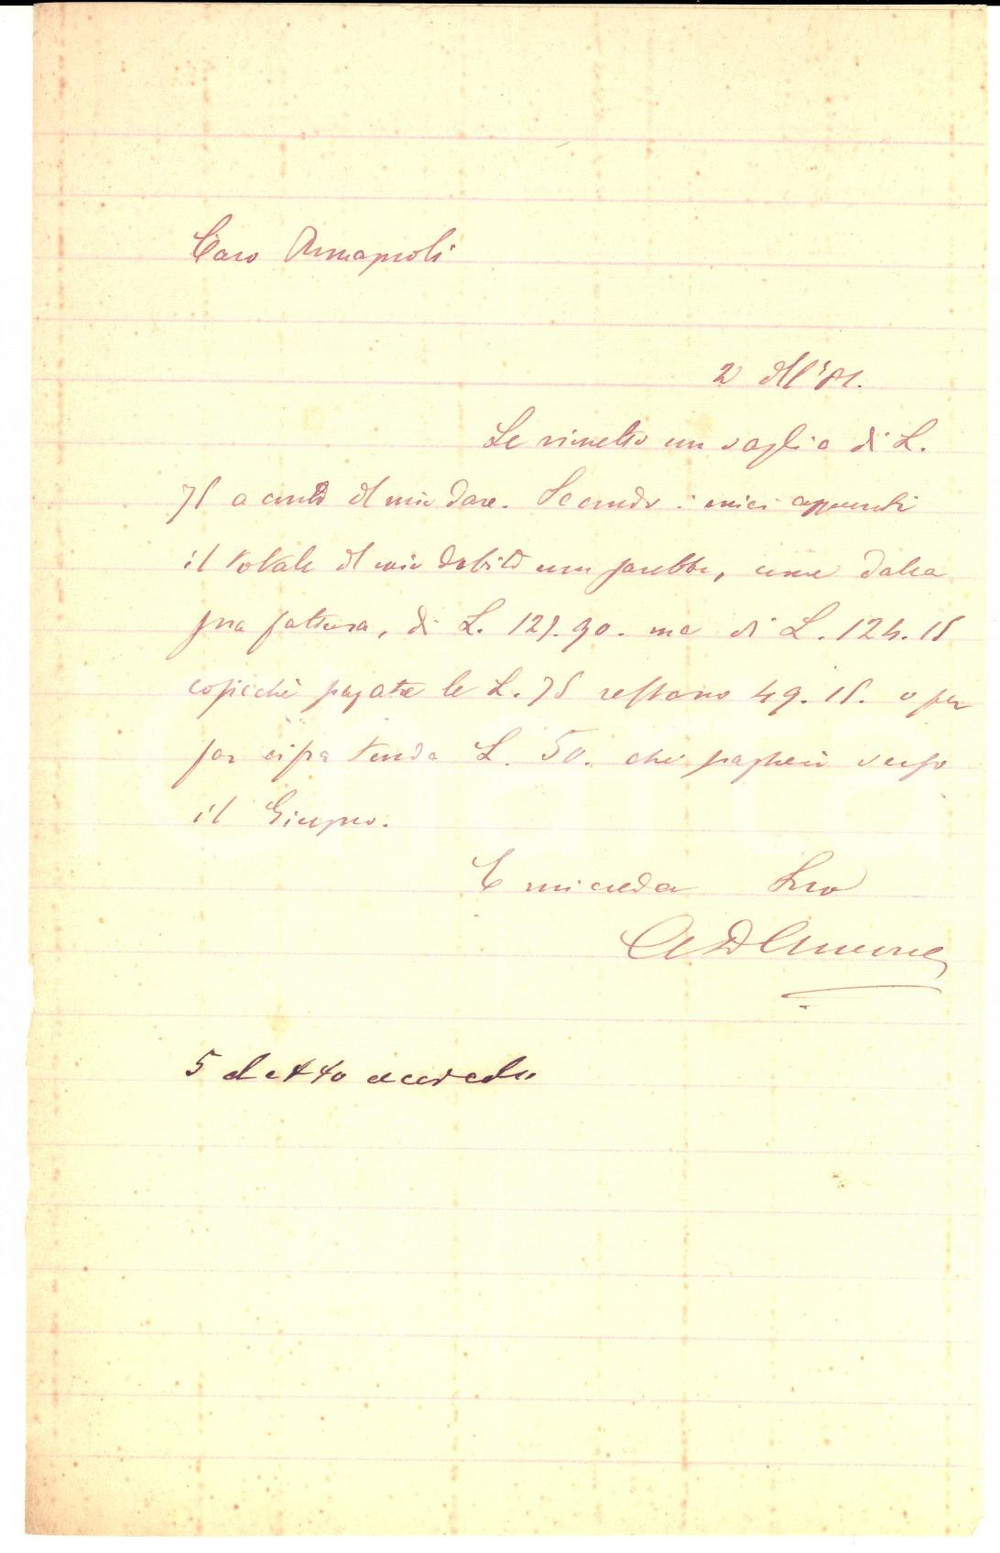 Caro Annapoli
2 '81.
Le rimetto un vaglia di L.
75 a conto del mio dare. Secondo i miei appunti
il totale del mio debito non sarebbe, come dalla
sua fattura, di L. 129.90. ma di L. 124.15
cosicchè pagate le L. 75 restano 49.15. o per
far cifra tonda L. 50. che pagherò verso
il Giugno.
E mi creda Suo
5 detto accredo